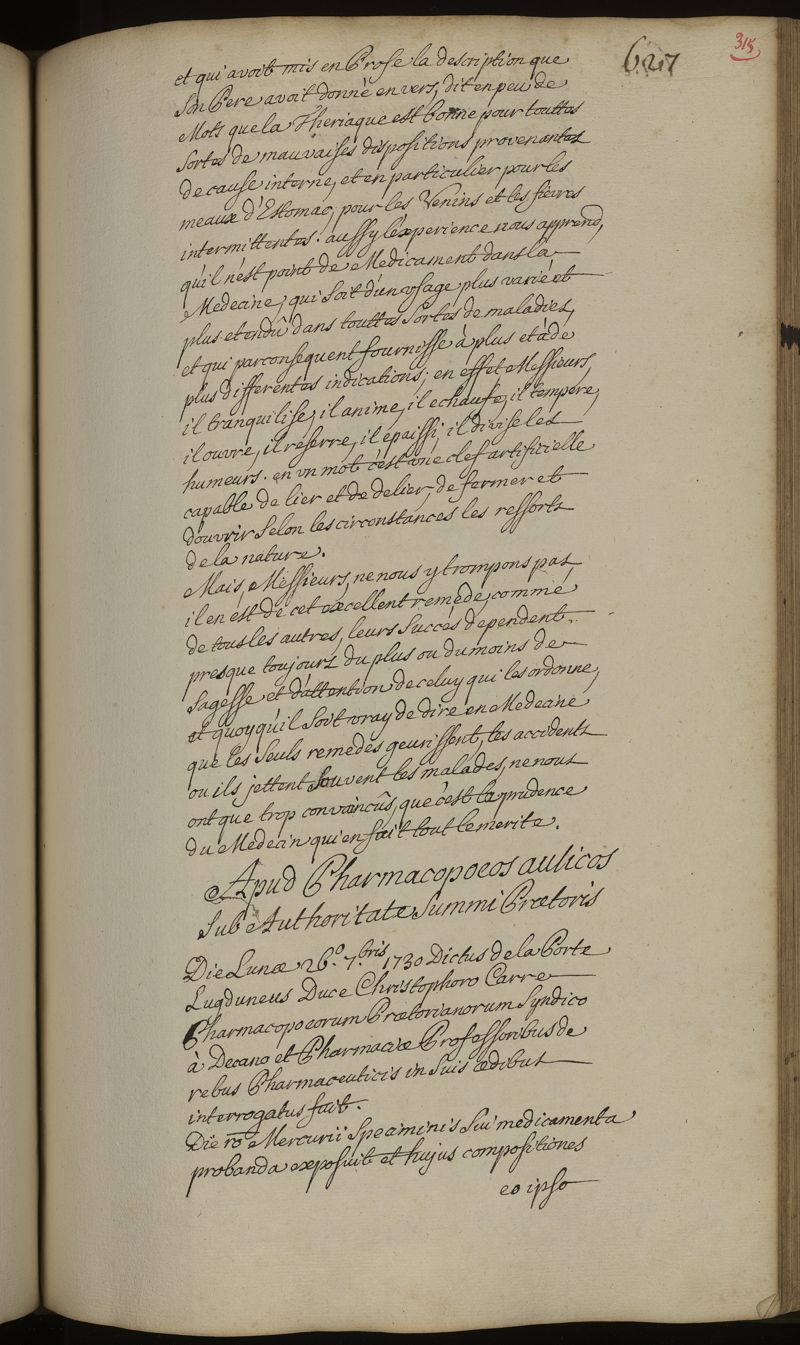 627
315
et qui avoit mis en Prose la description que
Son Pere avoit donné en vers, dit en peu de
Mots que la Theriaque est bonne pour touttes
Sortes de mauvaises dispositions provenantes
de cause interne, et en particulier pour les
meaux d'Estomac, pour les Venins et les fievres
intermittentes. aussy l'experience nous apprend,
qu'il n'est point de Medicament dans la
Medecine, qui Soit d'un usage plus varié et
plus etendû dans touttes Sortes de maladies,
et qui parconsequent fournisse à plus et à de
plus differentes indications; en effet Messieurs,
il tranquilise, il anime, il echaufe, il tempere,
il ouvre, il reserre, il epaissi, il divise les
humeurs. en un mot c'est une clef artificielle
capable de lier et de delier, de fermer et
d'ouvrir Selon les circonstances les ressorts
de la nature.
Mais, Messieurs, ne nous y trompons pas
il en est de cet excellent remede, comme
de tous les autres, leurs Succes dependent
presque toujours du plus ou du moins de
Sagesse et d'attention de celuy qui les ordonne,
et quoyqu'il Soit vray de dire en Medecine
que les Seuls remedes geurissent, les accidents
ou ils jettent Souvent les malades, ne nous
ont que trop convaincûs, que c'est la prudence
du Medecin qui en fait tout le merite.
Apud Pharmacopoeos aulicos
Sub Authoritate Summi Prætoris
Die Lunæ 26.° 7.bris 1730 Dictus de la Porte
Lugduneus Duce Christophoro Carre
Pharmacopoeorum Prætorianorum Syndico
à Decano et Pharmaciæ Professoribus de
rebus Pharmaceuticis in Suis ædibus
interrogatus fuit.
Die ro Mercurii Speciminis Sui medicamenta
probanda exposuit et hujus compositiones
eo ipso